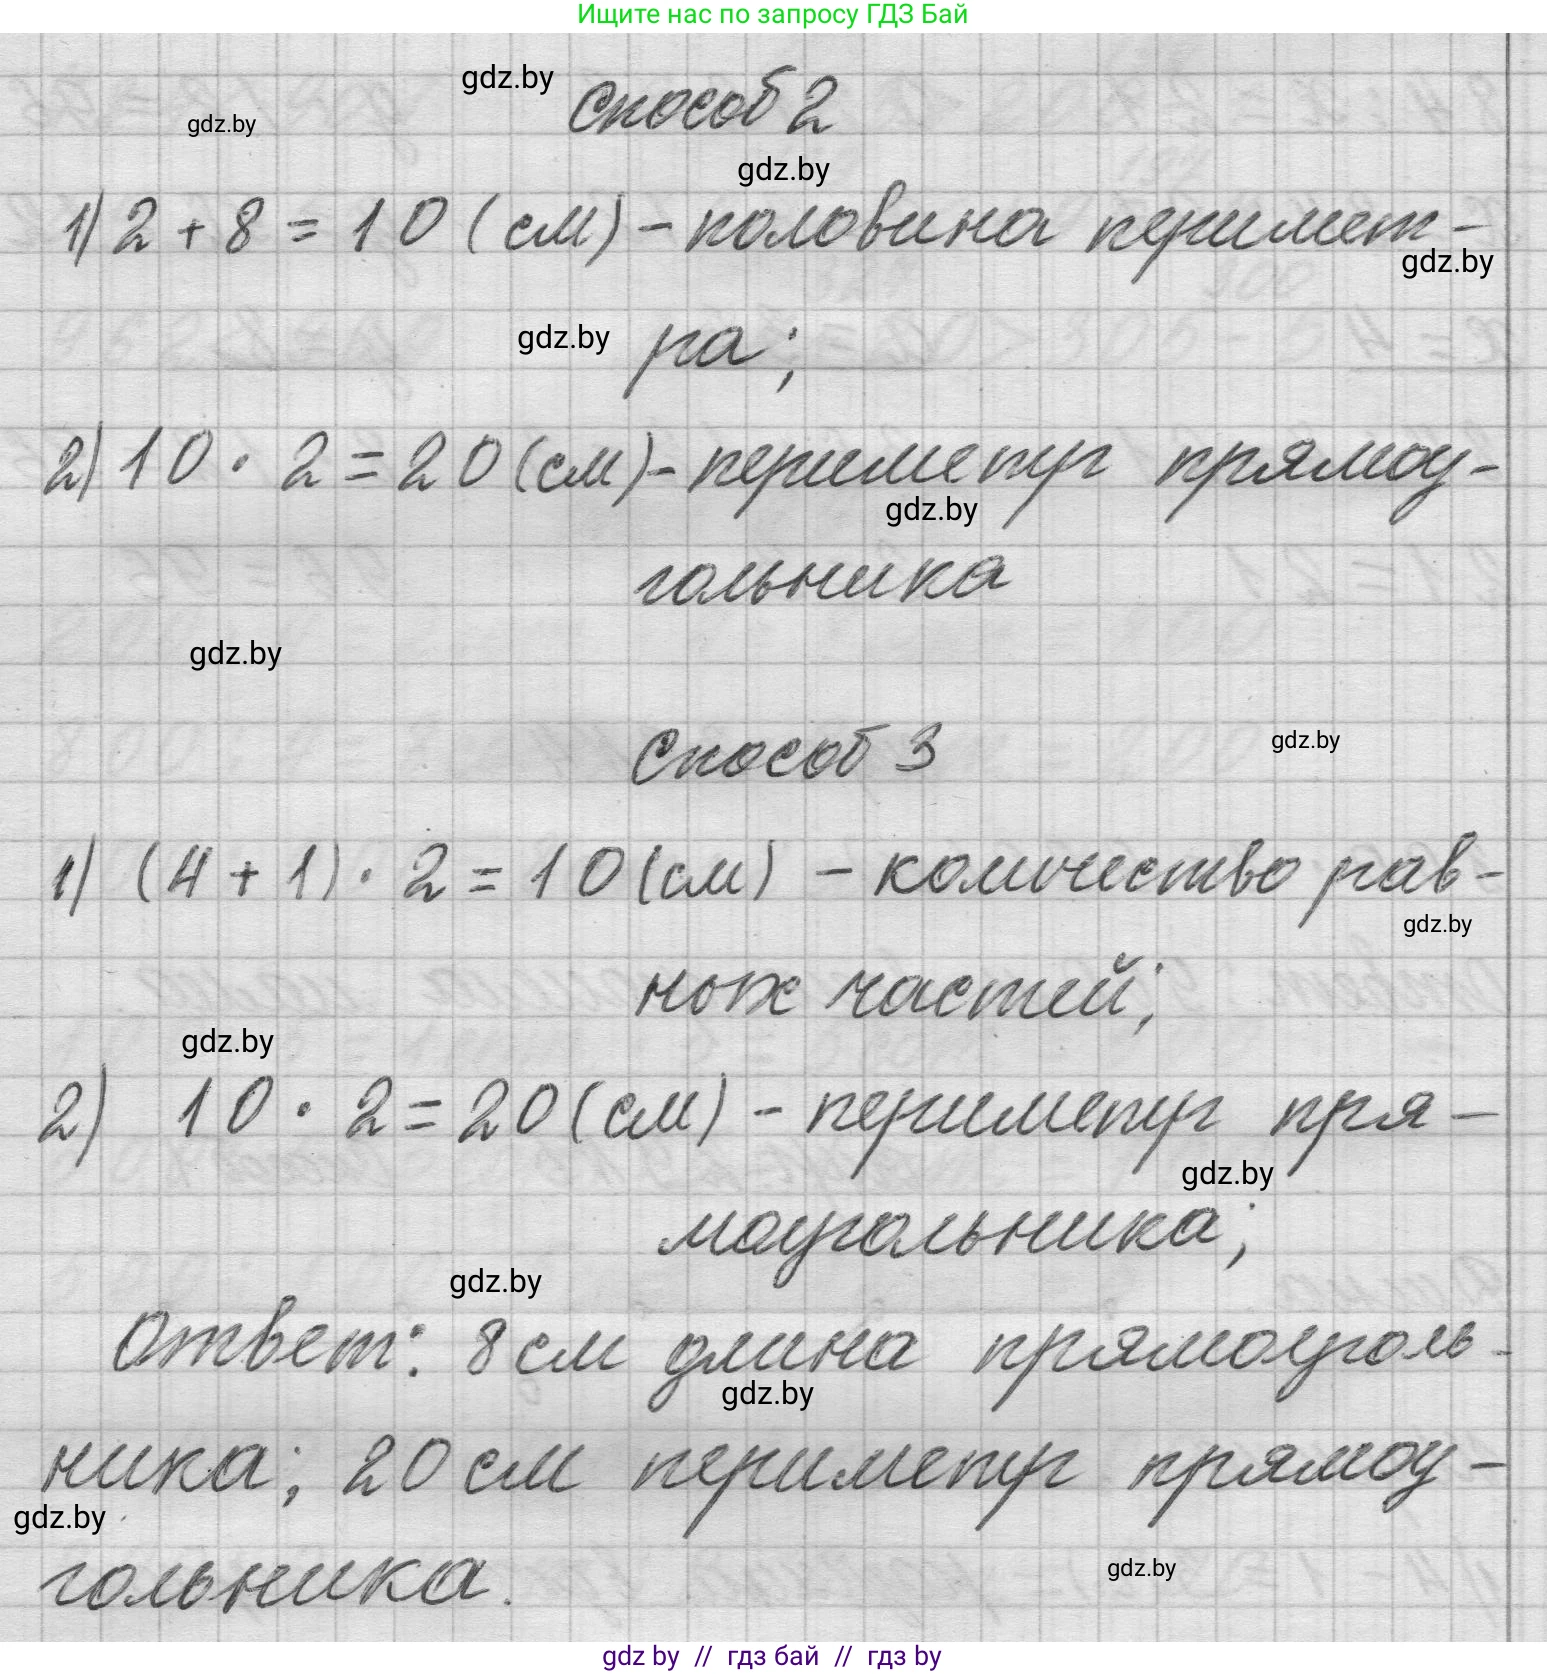 Ищите нас по запросу ГДЗ Бай
gdz.by
Способ 2
gdz.by
gdz.by
1) 2 + 8 = 10 (см) - половина перимет-
gdz.by
gdz.by
ра;
2) 10 · 2 = 20 (см) - периметр прямоу-
gdz.by
гольника
gdz.by
Способ 3
gdz.by
1) (4 + 1) · 2 = 10 (см) - количество рав-
gdz.by
ных частей;
gdz.by
2) 10 · 2 = 20 (см) - периметр пря-
gdz.by
моугольника;
gdz.by
Ответ: 8 см длина прямоуголь-
gdz.by
ника; 20 см периметр прямоу-
gdz.by
гольника.
gdz.by
gdz by // гдз бай // гдз by